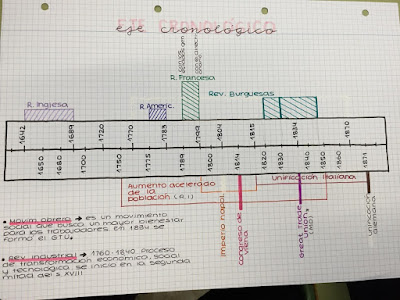 eje cronológico
R. Francesa
R. Inglesa
R. Americ.
Rev. Burguesas
1642
1689
1720
1770
1783
1799
1804
1815
1830
1834
1848
1870
1650
1680
1700
1750
1775
1789
1800
1814
1820
1840
1850
1860
1871
Aumento acelerado
de la
población (R.I)
Unificación Italiana
Imperio napol.
Congreso de
Viena
Great Trade
Union
(M.O)
Unificación
alemana
• Movim. obrero → es un movimiento
social que busca un mayor bienestar
para los trabajadores. En 1834 se
forma el GTU.
• Rev. industrial → 1760-1840. Proceso
de transformación económica, social
y tecnológica se inició en la segunda
mitad del s. XVIII.